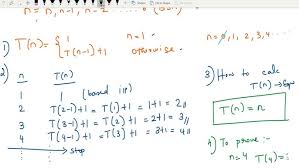 n = n, n-1, n-2
1) T(n) = { 1 n=1
T(n-1)+1 otherwise.
n = 0, 1, 2, 3, 4
2) n T(n)
1 1 (based
2 T(2-1)+1 = T(1)+1 = 1+1 = 2//
3 T(3-1)+1 = T(2)+1 = 2+1 = 3//
4 T(4-1)+1 = T(3)+1 = 3+1 = 4//
stop
3) How to calc
T(n) →
T(n) = n
4) To prove :-
n=4 T(4)=